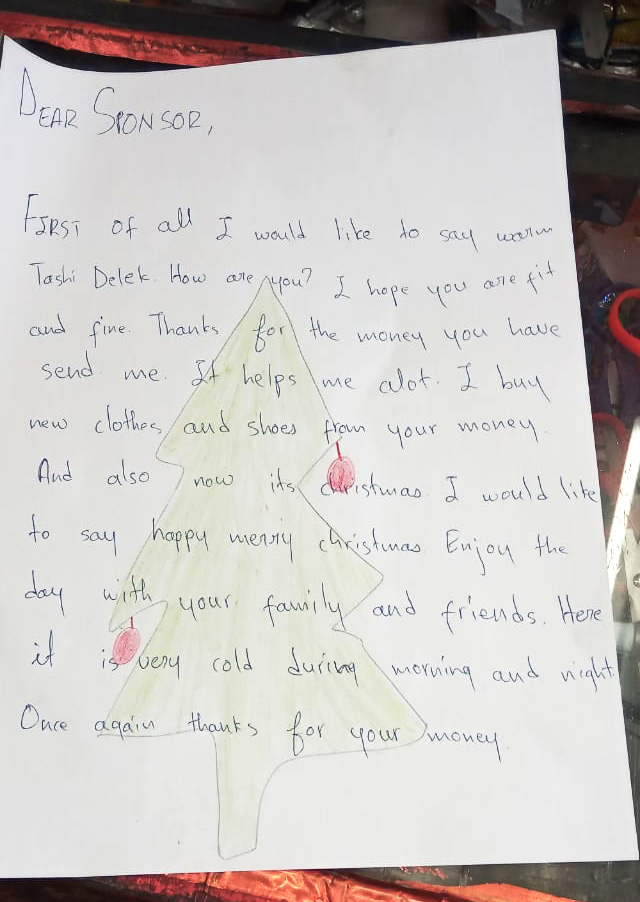 DEAR SPONSOR,
FIRST OF all I would like to say warm
Tashi Delek. How are you? I hope you are fit
and fine. Thanks for the money you have
send me. It helps me alot. I buy
new clothes and shoes from your money.
And also now its christmas. I would like
to say happy merry christmas. Enjoy the
day with your family and friends. Here
it is very cold during morning and night.
Once again thanks for your money.